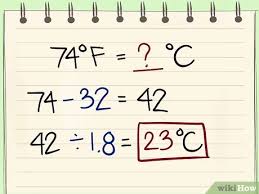 74°F = ? °C
74 - 32 = 42
42 ÷ 1.8 = 23°C
wikiHow